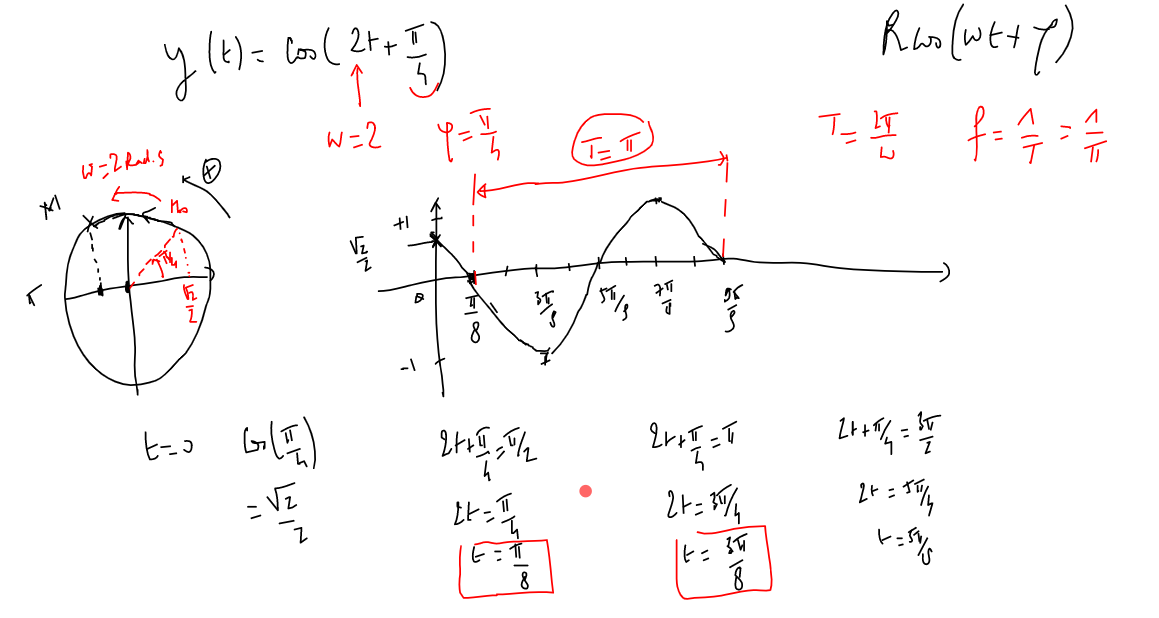 y(t) = cos(2t + π/4)
R cos(ωt + φ)
ω = 2
φ = π/4
T = π
T = 2π/ω
f = 1/T = 1/π
ω = 2 Rad.s
+
M
M₀
π/4
π
√2/2
+1
√2/2
0
-1
π/8
3π/8
5π/8
7π/8
9π/8
t = 0
cos(π/4)
= √2/2
2t + π/4 = π/2
2t = π/4
t = π/8
2t + π/4 = π
2t = 3π/4
t = 3π/8
2t + π/4 = 3π/2
2t = 5π/4
t = 5π/8